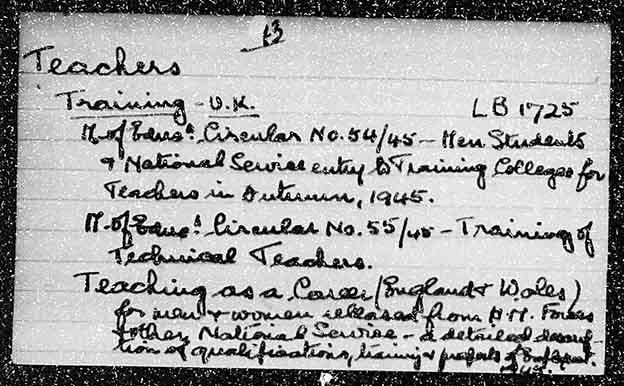 13
Teachers
Training - U.K. LB 1725
M. of Educn. Circular No. 54/45 - Men Students
& National Service entry to Training Colleges for
Teachers in Autumn, 1945.
M. of Educn. Circular No. 55/45 - Training of
Technical Teachers.
Teaching as a Career (England & Wales)
for men & women released from H.M. Forces
& other National Service - a detailed descrip-
tion of qualifications, training & prospects of